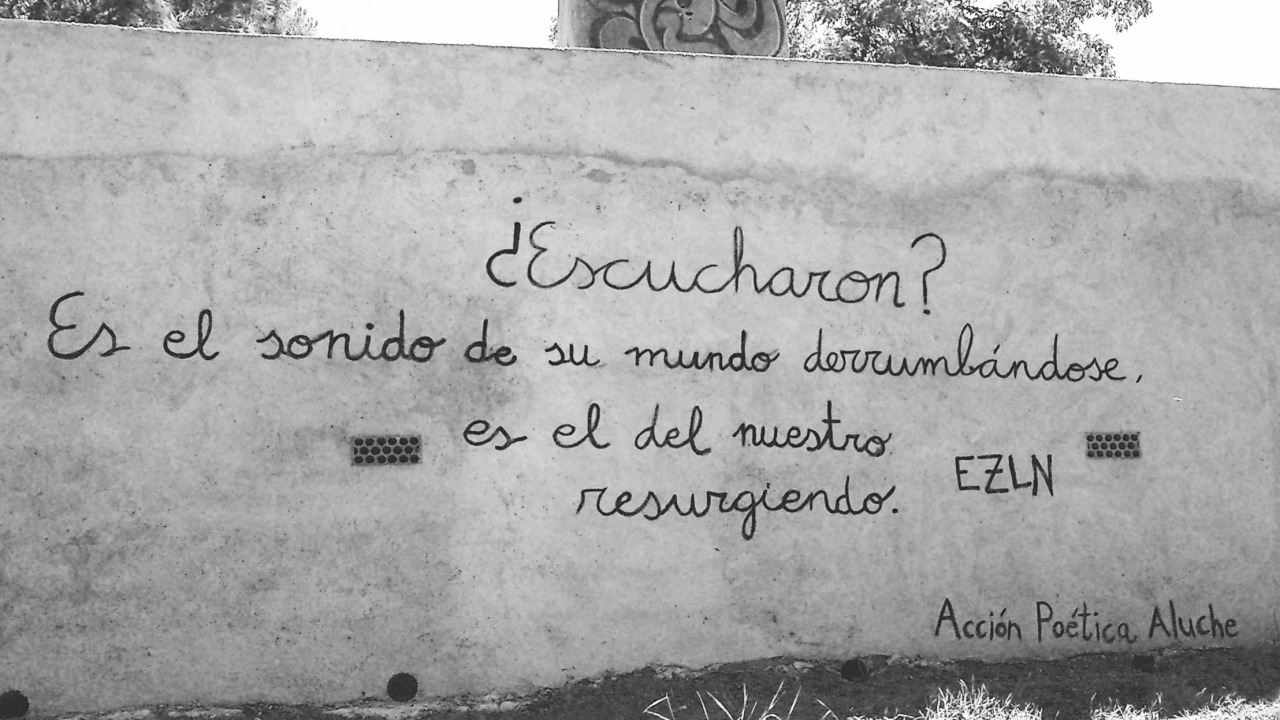 ¿Escucharon?
Es el sonido de su mundo derrumbándose,
es el del nuestro
resurgiendo.
EZLN
Acción Poética Aluche